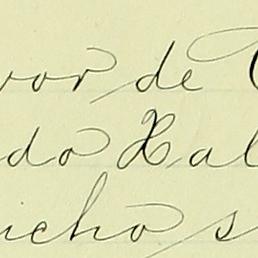 vor de
do Hal
ucho s